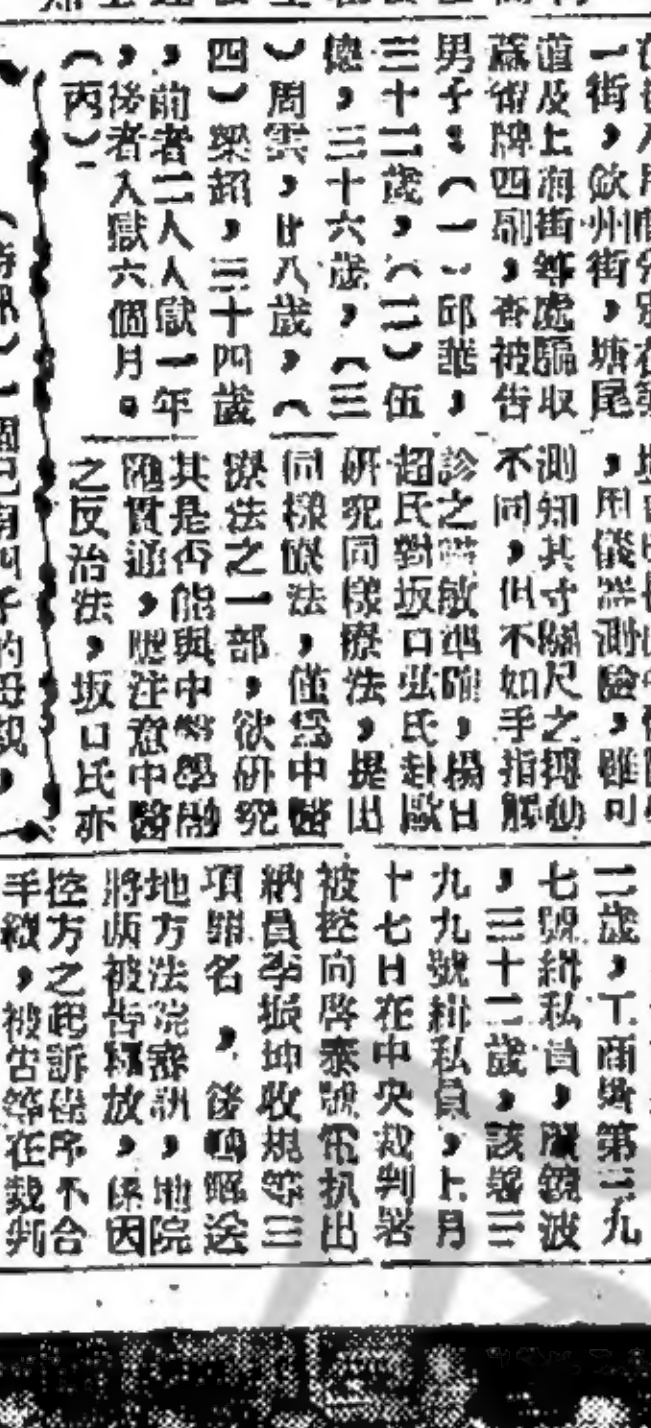 一街，欽州街，塘尾
道及上海街等處騙取
麻雀牌四副，查被告
男子：（一）邱華，
三十二歲，（二）伍
德，三十六歲，（三
）周雲，廿八歲，（
四）梁超，三十四歲
，前者二人入獄一年
，後者入獄六個月。
（丙）
，用儀器測驗，雖可
測知其寸關尺之搏動
不同，但不如手指觸
診之靈敏準確，楊日
超氏對坂口弘氏赴歐
研究同樣療法，提出
同樣療法，僅為中醫
療法之一部，欲研究
其是否能與中醫學融
匯貫通，應注意中醫
之反治法，坂口氏亦
二歲，工商緝第三九
七號緝私員，
，三十二歲，該署三
九九號緝私員，上月
十七日在中央裁判署
被控向啓泰號電扒出
納員李振坤收規等三
項罪名，後經解送
地方法院審訊，地院
將兩被告釋放，係因
控方之起訴程序不合
手續，被告等在裁判
一個已有四子的母親，